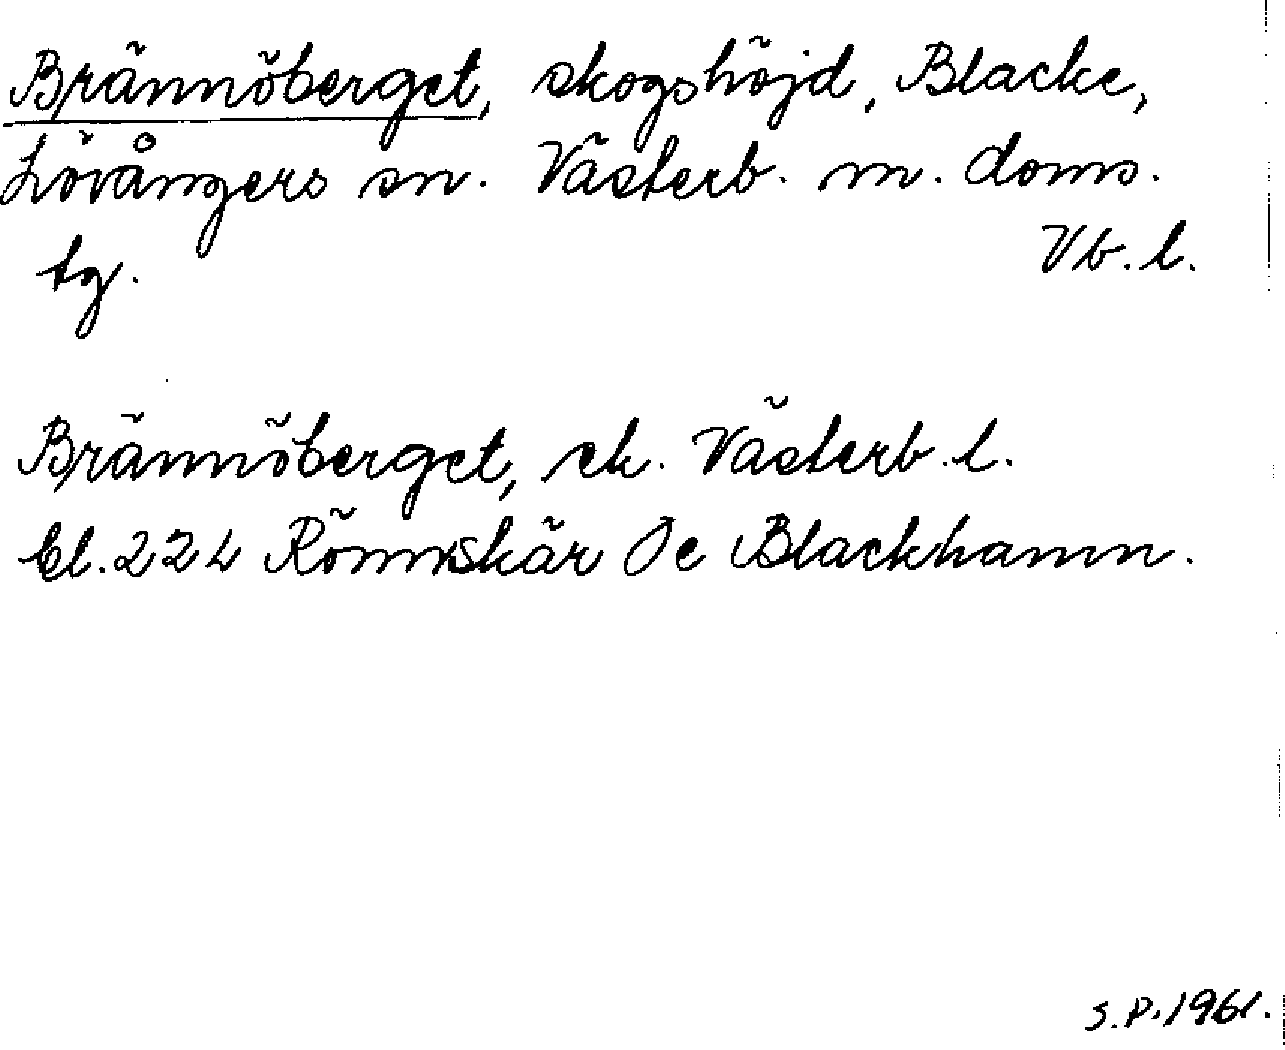 Brännöberget, skogshöjd, Blacke,
Lövångers sn. Västerb. m. doms.
tg. Vb. l.
Brännöberget, ek. Västerb. l.
bl. 224 Rönnskär Öe Blackhamn.
S.P. 1961.